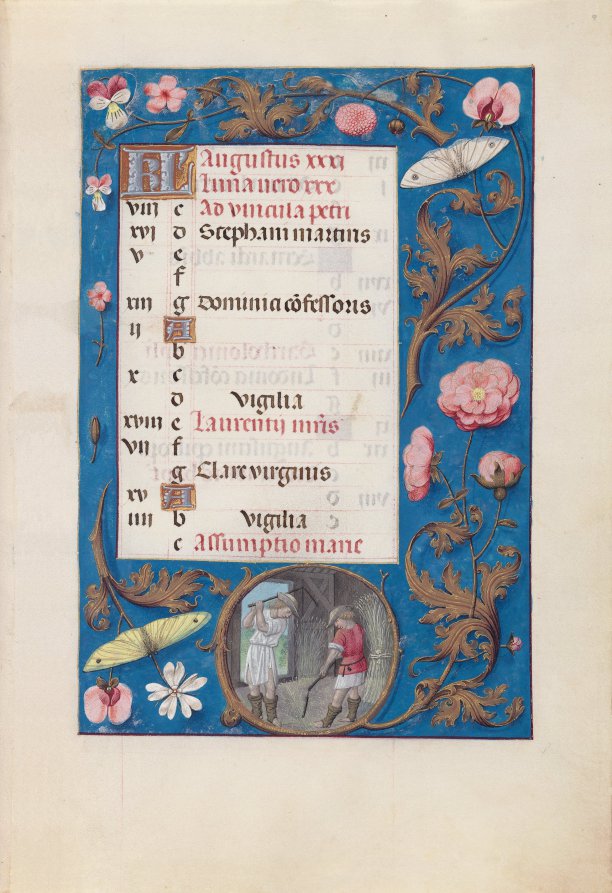 KL Augustus xxxi
Luna vero xxx
viii c Ad vincula petri
xvi d Stephani martiris
v e
f
xiii g Dominici cõfessoris
ii A
b
x c
d vigilia
xviii e Laurentii mr̃is
vii f
g Clare virginis
xv A
iiii b vigilia
c Assumptio marie